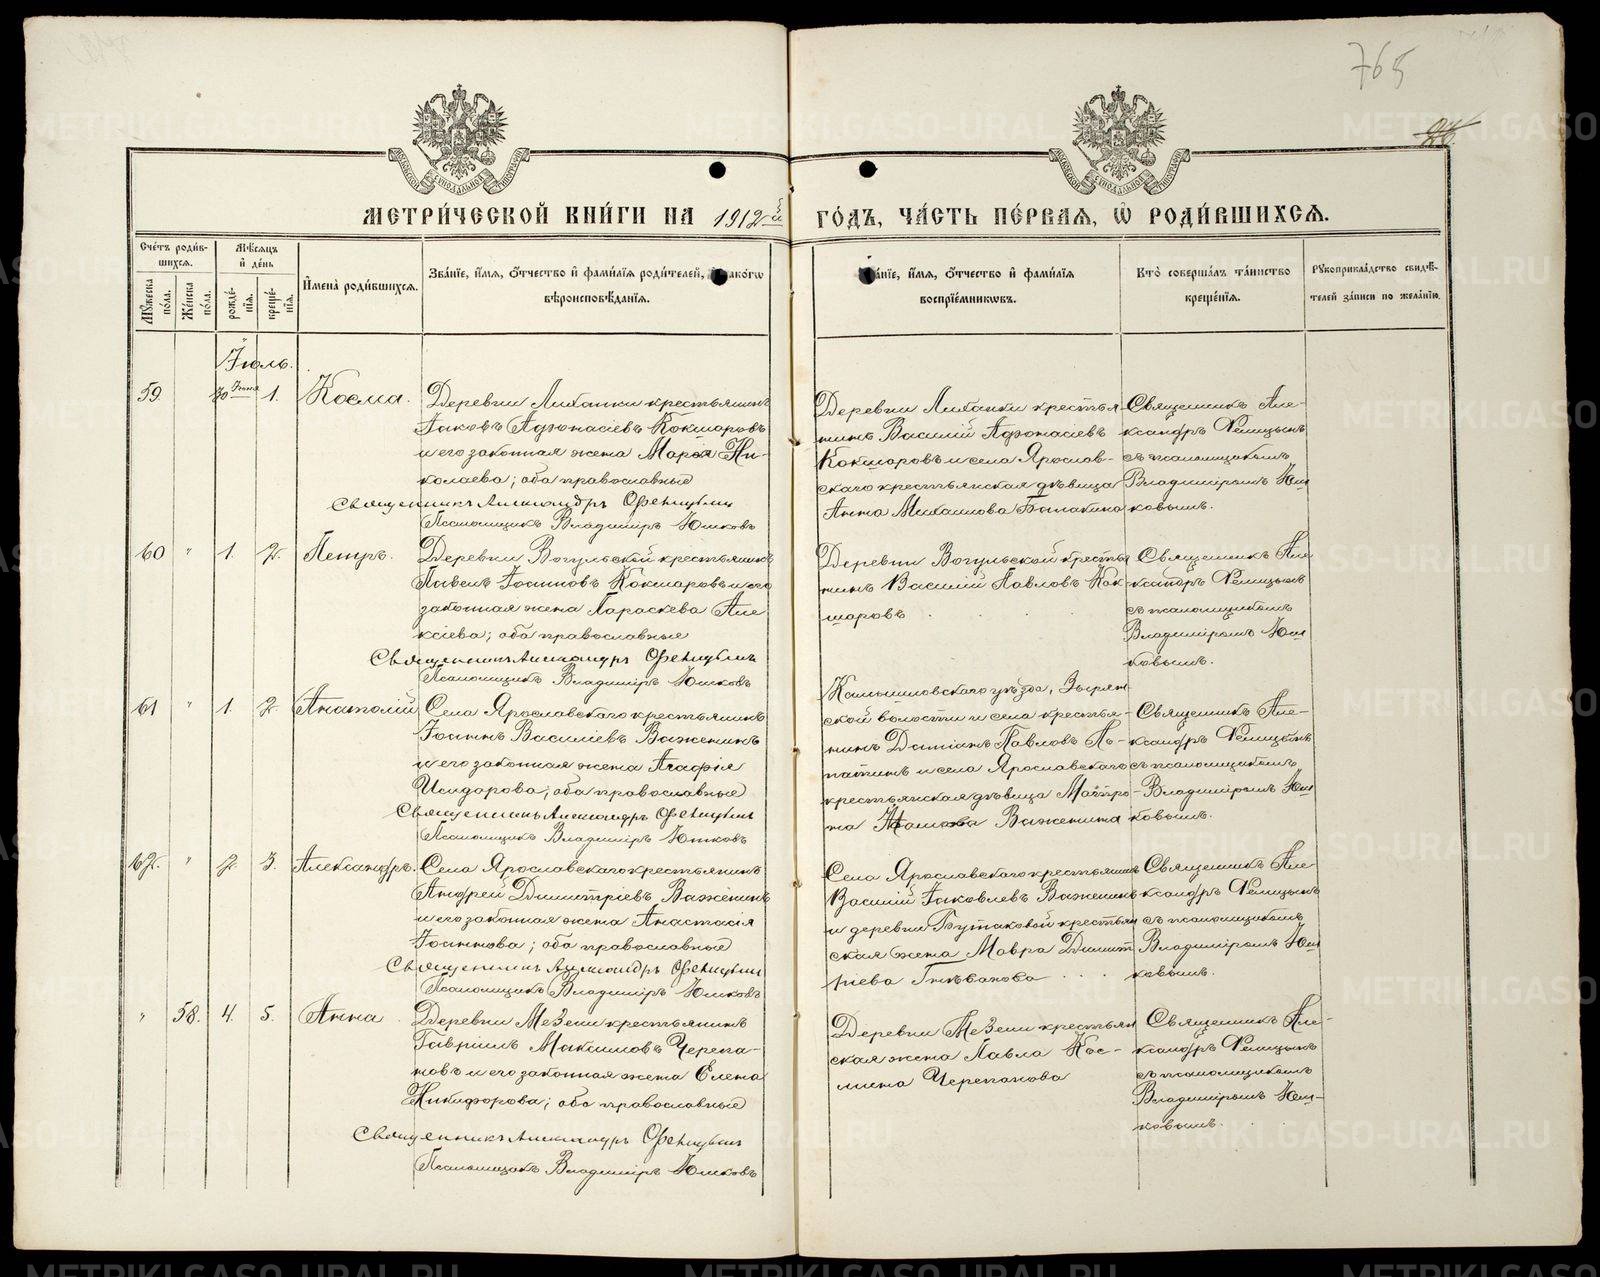 765
МЕТРИ́ЧЕСКОЙ КНИ́ГИ НА 1912й ГО́ДЪ, ЧА́СТЬ ПЕ́РВАЯ, Ѡ҆ РОДИ́ВШИХСЯ.
Сче́тъ роди́в-
шихся.
Мѣ́сяцъ
и҆ де́нь
Мꙋ́жеска
по́ла.
Же́нска
по́ла.
рожде́-
нїѧ.
креще́-
нїѧ.
И҆мена̀ роди́вшихсѧ.
Зва́нїе, и҆́мѧ, ѻ҆́тчество и҆ фами́лїѧ роди́телей, и҆ како́гѡ
вѣроисповѣ́данїѧ.
Зва́нїе, и҆́мѧ, ѻ҆́тчество и҆ фами́лїѧ
воспрїе́мникѡвъ.
Кто̀ соверша́лъ та́инство
креще́нїѧ.
Рꙋкоприкла́дство свидѣ́-
телей за́писи по жела́нїю.
Іюль.
59 30 Іюня 1. Косма.
Деревни Лиханки крестьянинъ
Іаковъ Афонасіевъ Кокшаровъ
и его законная жена Марія Ни-
колаева; оба православные
Священникъ Александръ Фелицынъ
Псаломщикъ Владиміръ Юшковъ
Деревни Лиханки крестья-
нинъ Василій Афонасіевъ
Кокшаровъ и села Ярослав-
скаго крестьянская дѣвица
Анна Михаилова Балакина
Священникъ Але-
ксандръ Фелицынъ
съ псаломщикомъ
Владиміромъ Юш
ковымъ.
60 " 1. 2. Петръ.
Деревни Вогульской крестьянинъ
Павелъ Іоанновъ Кокшаровъ и его
законная жена Параскева Але
ксіева; оба православные
Священникъ Александръ Фелицынъ
Псаломщикъ Владиміръ Юшковъ
Деревни Вогульской крестья
нинъ Василій Павловъ Кок-
шаровъ
Священникъ Але
ксандръ Фелицынъ
съ псаломщикомъ
Владиміромъ Юш
ковымъ.
61 " 1. 2. Анатолій
Села Ярославскаго крестьянинъ
Іоаннъ Василіевъ Важенинъ
и его законная жена Агафія
Исидорова; оба православные
Священникъ Александръ Фелицынъ
Псаломщикъ Владиміръ Юшковъ
Камышловскаго уѣзда, Зырян
ской волости и села крестья-
нинъ Даміанъ Павловъ Ло-
патинъ и села Ярославскаго
крестьянская дѣвица Матро-
на Важенина
Священникъ Але-
ксандръ Фелицынъ
съ псаломщикомъ
Владиміромъ Юш
ковымъ.
62. " 2. 3. Александръ.
Села Ярославскаго крестьянинъ
Андрей Димитріевъ Важенинъ
и его законная жена Анастасія
Іоаннова; оба православные
Священникъ Александръ Фелицынъ
Псаломщикъ Владиміръ Юшковъ
Села Ярославскаго крестьянинъ
Василій Іаковлевъ Важенинъ
и деревни Бутаковой крестьян
ская жена Мавра Димит
ріева Гнѣванова
Священникъ Але-
ксандръ Фелицынъ
съ псаломщикомъ
Владиміромъ Юш
ковымъ.
" 58. 4. 5. Анна
Деревни Мезени крестьянинъ
Гавріилъ Максимовъ Черепа-
новъ и его законная жена Елена
Никифорова; оба православные
Священникъ Александръ Фелицынъ
Псаломщикъ Владиміръ Юшковъ
Деревни Мезени крестьян
ская жена Павла Кос-
мина Черепанова
Священникъ Але-
ксандръ Фелицынъ
съ псаломщикомъ
Владиміромъ Юш-
ковымъ.
METRIKI.GASO-URAL.RU